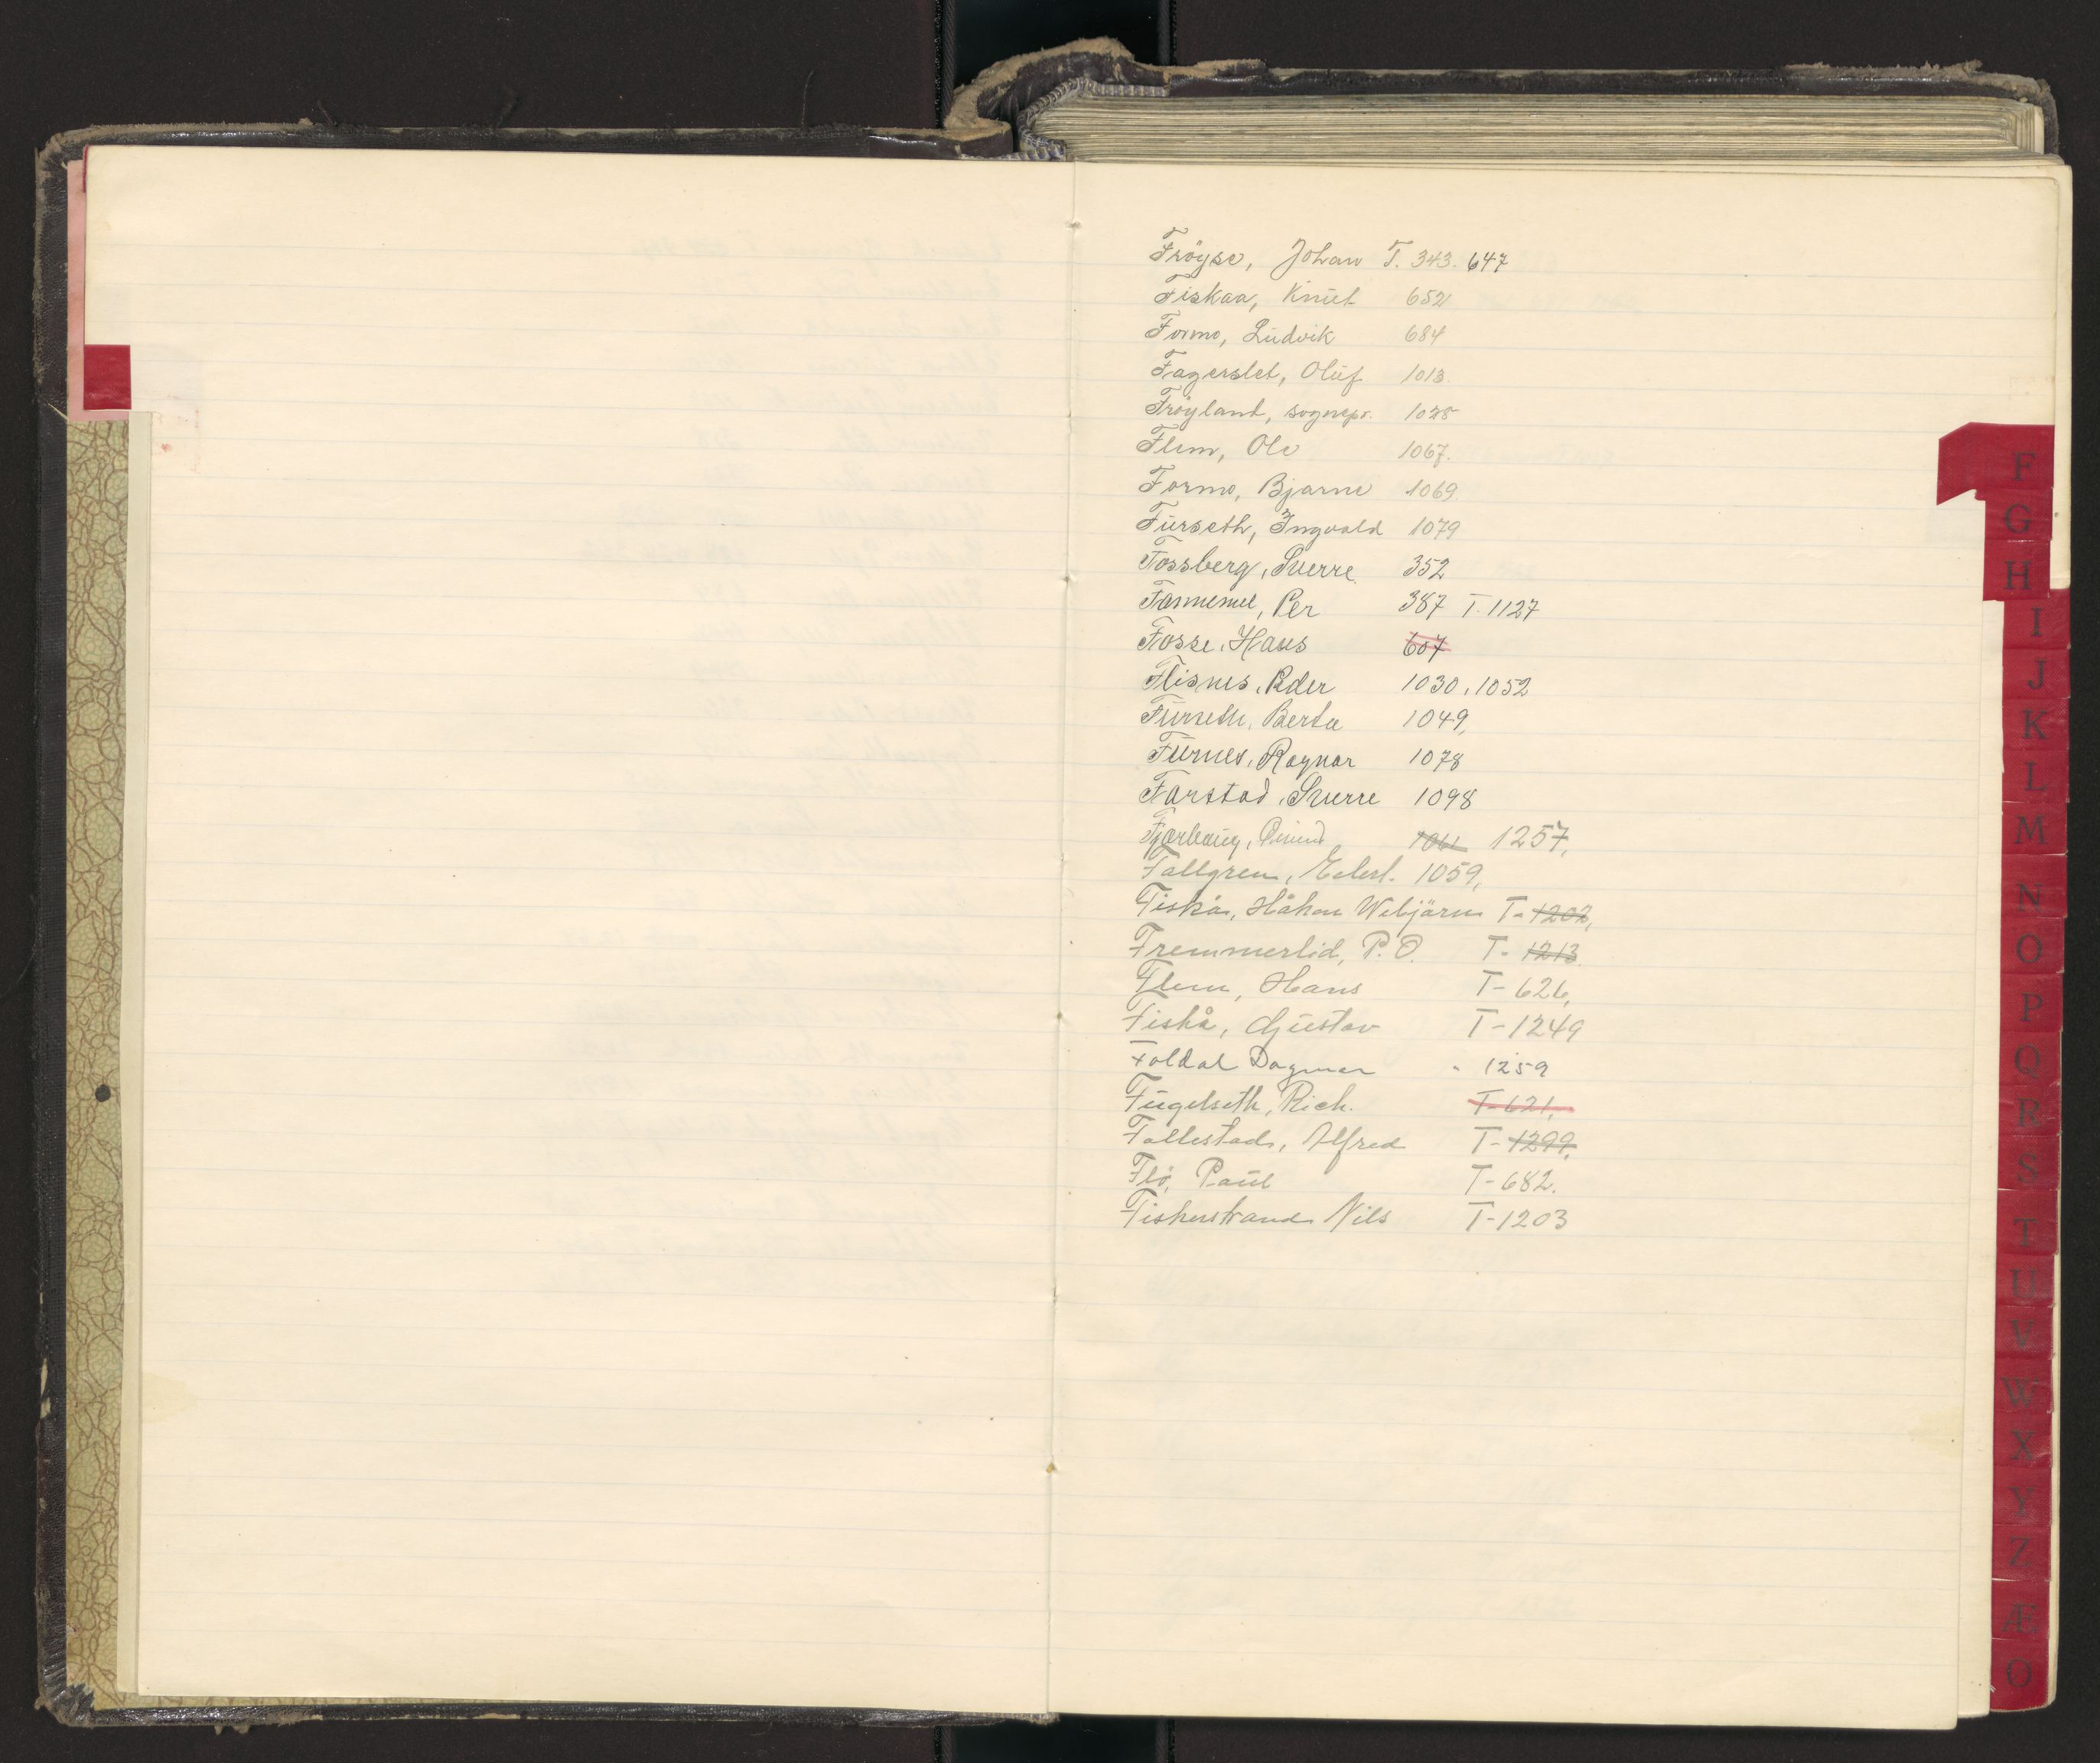 Frøyse, Johan T. 343. 647
Fiskaa, Knut 652
Formo, Ludvik 684
Fagerslet, Oluf 1013.
Frøyland, sognepr. 1028
Flem, Ole 1067.
Formo, Bjarne 1069.
Furseth, Ingvald 1079
Fossberg, Sverre 352
Per 387 T. 1127
Fosse, Hans 607
Flisnes, Peder 1030, 1052
Furseth, Berta 1049,
Furnes, Ragnar 1078
Farstad, Sverre 1098
1061 1257,
Fallgren, 1059,
Fiskå, Håkon T- 1202,
Fremmerlid, P.O. T- 1213
Flem, Hans T- 626,
Fiskå, Gustav T-1249
Foldal Dagmar " 1259
Fugelseth, Rich. T-621,
Follestad, Alfred T-1299,
Flø, Paul T-682.
Fiskerstrand Nils T-1203
F
G
H
I
J
K
L
M
N
O
P
Q
R
S
T
U
V
W
X
Y
Z
Æ
O